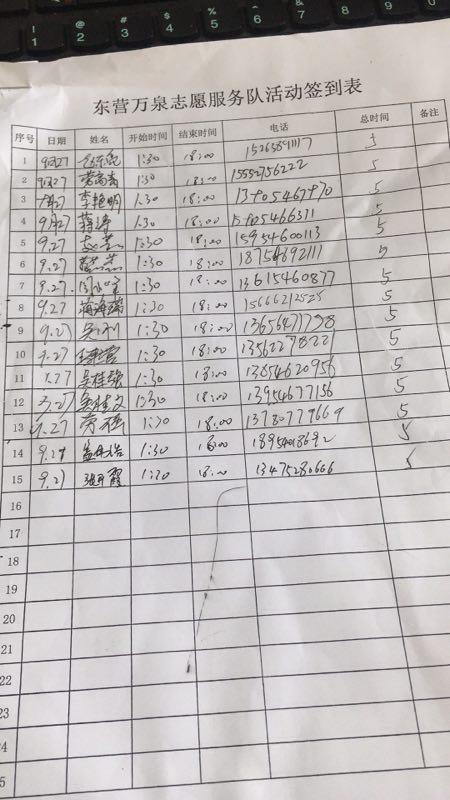 东营万泉志愿服务队活动签到表
序号 日期 姓名 开始时间 结束时间 电话 总时间 备注
1 9月27 1:30 18:00 5
2 9月27 1:30 18:00 15552756222 5
3 9月27 李艳明 1:30 18:00 13805467870 5
4 9月27 蒋涛 1:30 18:00 15805466311 5
5 9.27 1:30 18:00 15954600113 5
6 9.27 1:30 18:00 18754692111 5
7 9.27 1:30 18:00 13615460877 5
8 9.27 蒋海瑞 1:30 18:00 15666212525 5
9 9.27 吴刚 1:30 18:00 13656477798 5
10 9.27 1:30 18:00 5
11 9.27 吴桂强 1:30 18:00 13854620956 5
12 9.27 吴桂文 1:30 18:00 13954677156 5
13 9.27 劳强 1:30 18:00 13780777669 5
14 9.27 1:30 18:00 18954018692 5
15 9.27 1:30 18:00 13475280666 5
16
17
18
19
20
21
22
23
24
25